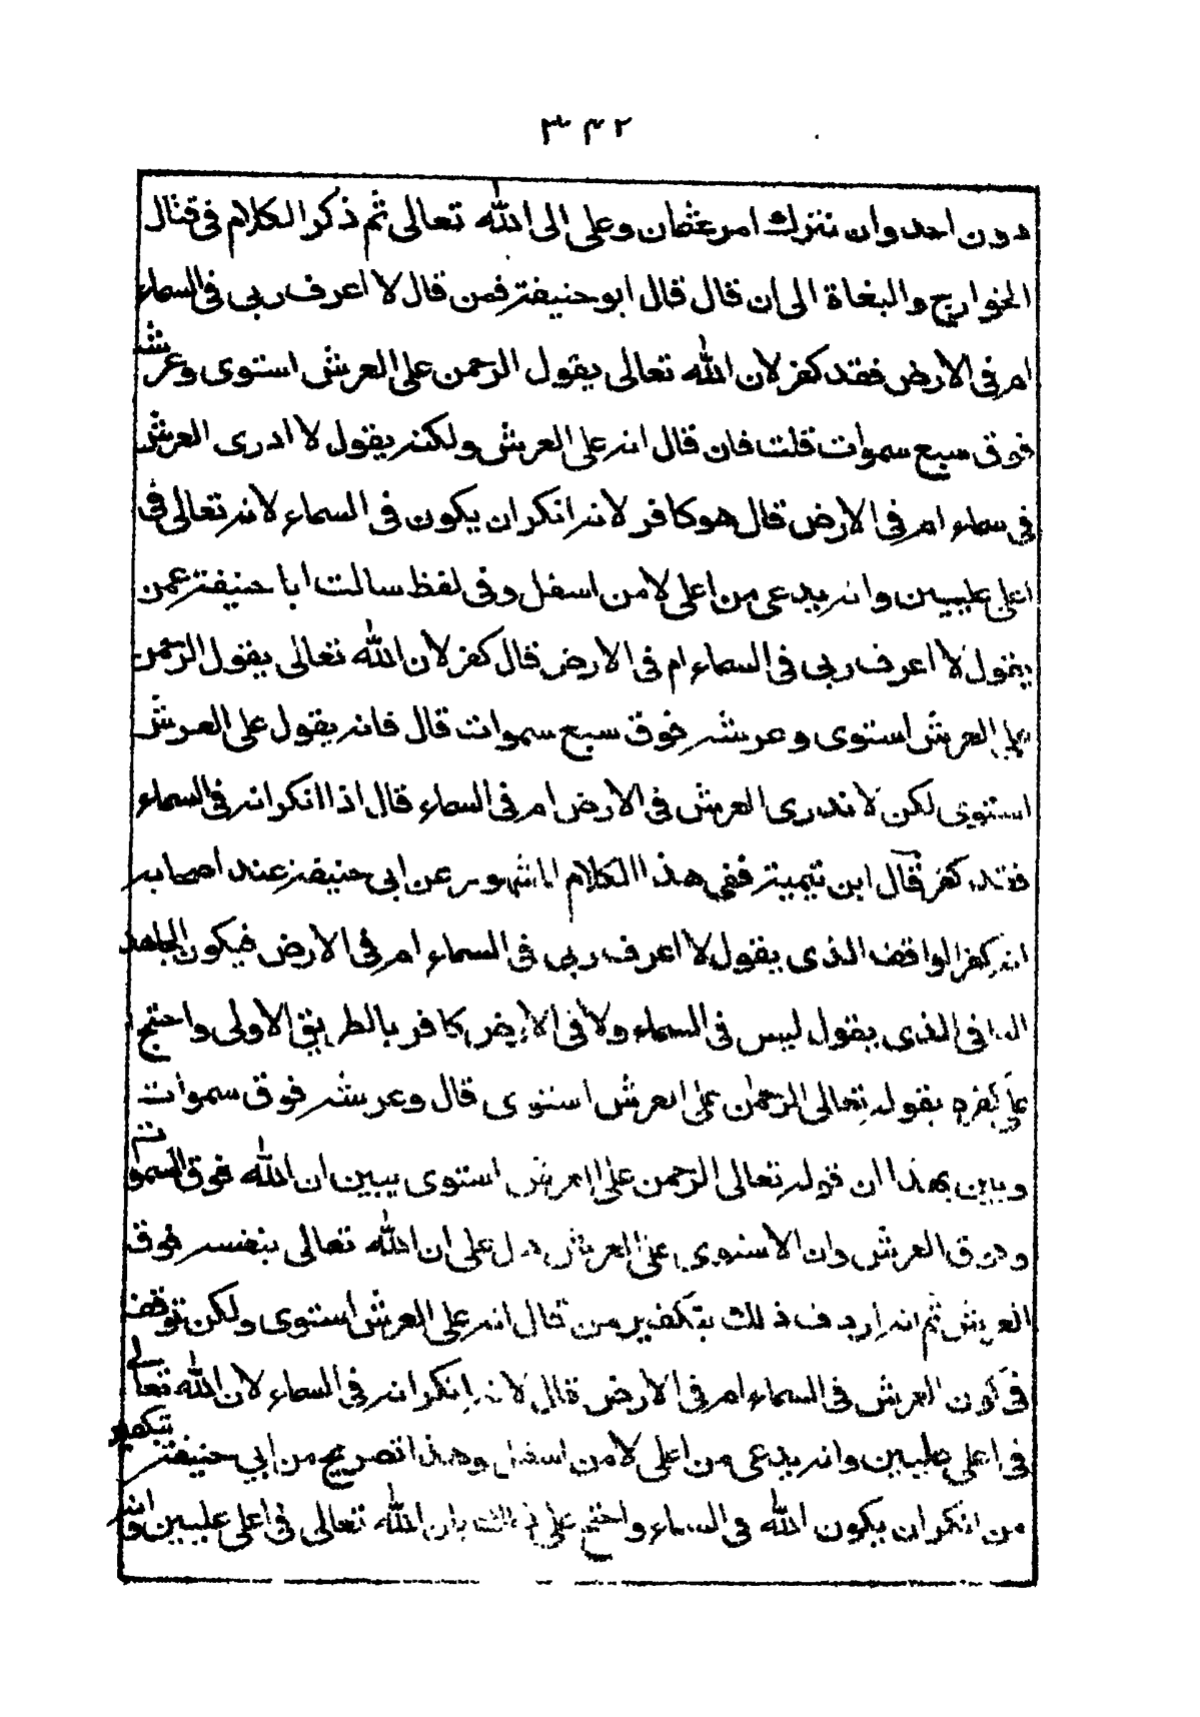 ٣٤٢
دون احد وان نترك امر عثمان وعلى الى الله تعالى ثم ذكر الكلام فى قتال
الخوارج والبغاة الى ان قال قال ابو حنيفة فمن قال لا اعرف ربى فى السماء
ام فى الارض فقد كفر لان الله تعالى يقول الرحمن على العرش استوى وعرشه
فوق سبع سموات قلت فان قال انه على العرش ولكنه يقول لا ادرى العرش
فى سماء ام فى الارض قال هو كافر لانه انكر ان يكون فى السماء لانه تعالى فى
اعلى عليين وانه يدعى من اعلى لا من اسفل وفى لفظ سالت ابا حنيفة عمن
يقول لا اعرف ربى فى السماء ام فى الارض قال كفر لان الله تعالى يقول الرحمن
على العرش استوى وعرشه فوق سبع سموات قال فانه يقول على العرش
استوى لكن لا ندرى العرش فى الارض ام فى السماء قال اذا انكر انه فى السماء
فقد كفر قال ابن تيمية ففى هذا الكلام المشهور عن ابى حنيفة عند اصحابه
انه كفر الواقف الذى يقول لا اعرف ربى فى السماء ام فى الارض فيكون الجاهد
النافى الذى يقول ليس فى السماء ولا فى الارض كافر بالطريق الاولى واحتج
على كفره بقوله تعالى الرحمن على العرش استوى قال وعرشه فوق سموات
وبين بهذا ان قوله تعالى الرحمن على العرش استوى يبين ان الله فوق السموات
وفوق العرش وان الاستوى على العرش دل على ان الله تعالى بنفسه فوق
العرش ثم انه اردف ذلك بتكفير من قال انه على العرش استوى ولكن توقف
فى كون العرش فى السماء ام فى الارض قال لانه انكر انه فى السماء لان الله تعالى
فى اعلى عليين وانه يدعى من اعلى لا من اسفل وهذا تصريح من ابي حنيفة بتكفير
من انكر ان يكون الله فى السماء واحتج على ذلك بان الله تعالى فى اعلى عليين وانه